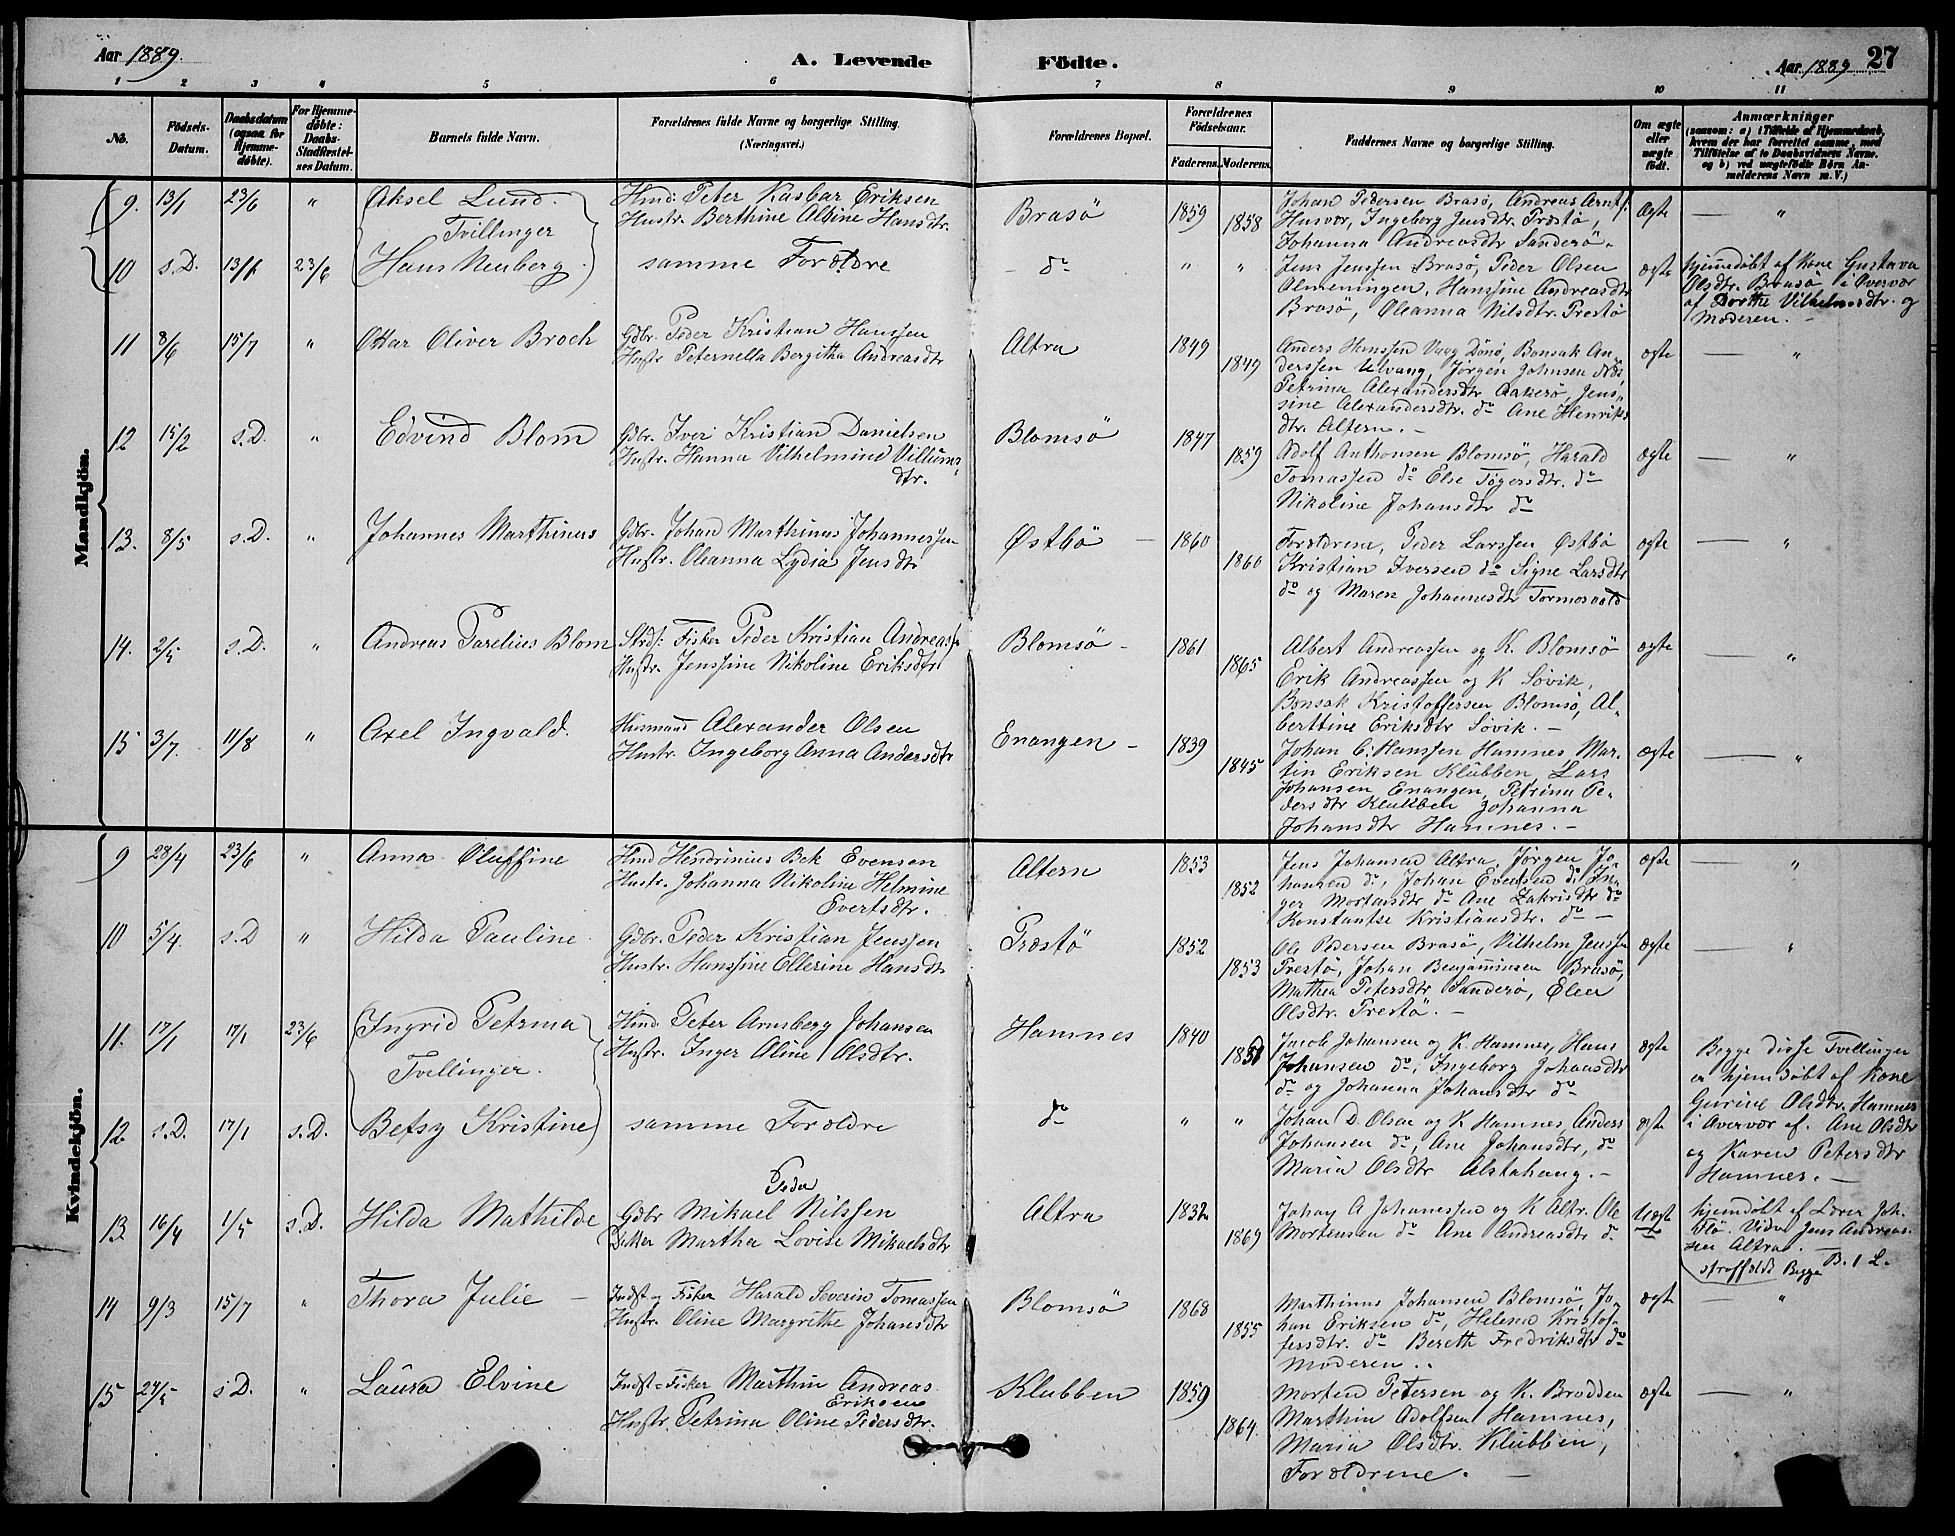 Aar 1889.
A. Levende Födte.
Aar 1889 27
1 2 3 4 5 6 7 8 9 10 11
No. Födsels-Datum. Daabsdatum (ogsaa for Hjemmedöbte). For Hjemmedöbte: Daabs-Stadfæstelses Datum. Barnets fulde Navn. Forældrenes fulde Navne og borgerlige Stilling. (Næringsvei.) Forældrenes Bopæl. Forældrenes Födselsaar. Faderens. Moderens. Faddernes Navne og borgerlige Stilling. Om ægte eller uægte födt. Anmærkninger (saasom: a) i Tilfælde af Hjemmedaab, hvem der har forrettet samme, med Tilföielse af to Daabsvidners Navne. og b) ved uægtefödte Börn Anmelderens Navn m. V.)
Mandkjön.
9. 13/1 23/6 " Aksel Lund. Hmd: Peter Kasbar Eriksen Brasö 1859 Johan Pedersen Brasö, Andreas Arntz. Ægte — "
Tvillinger Hustr. Berthine Albine Hansdtr. 1858 Husvær, Ingeborg Jensdtr Præstö,
Johanna Andreasdtr Sanderö.
10 s.D. 13/1 23/6 Hans Neuberg samme Forældre — do " " Jens Jenssen Brasö, Peder Olsen ægte hjemmedøbt af Kone Gustava
Olmeningen, Hanssine Andreasdtr Olsdtr. Brasö i Overvær
Brasö, Oleanna Nilsdtr. Præstö af Dorthe Vilhelmsdtr. og
Moderen. —
11 8/6 15/7 " Ottar Oliver Broch Gdbr. Peder Kristian Hanssen Altra 1849 Anders Hanssen Vaag Dönö, Bonsak An- ægte — "
Hustr Peternella Bergitha Andreasdtr 1849 derssen Ulvang, Jörgen Johnsen
Petrina Alexandersdtr Aakerö, Jens-
sine Alexandersdtr. do Ane Henriks
dtr. Altern. —
12 15/2 s.D. " Edvind Blom Gdbr. Iver Kristian Danielsen Blomsö 1847 Adolf Anthonsen Blomsö, Harald ægte — "
Hustr. Hanna Vilhelmine Villums- 1859 Tomassen do Else Tögersdtr. do
dtr. Nikoline Johansdtr do
13. 8/5 s.D. " Johannes Marthinus Gdbr. Johan Marthinus Johannessen Østbö — 1860 Forældrene, Peder Larssen Østbö ægte — "
Hustr. Oleanna Lydia Jensdtr 1860 Kristian Iversen do Signe Larsdtr
do og Maren Johannesdtr Tormosvold
14. 2/5 s.D. " Andreas Parelius Blom Strds: Fisker Peder Kristian Andreass. Blomsö — 1861 Albert Andreassen og K. Blomsö ægte — "
Hustr. Jenssine Nikoline Eriksdtr 1865 Erik Andreassen og K Sövik,
Bonsak Kristoffersen Blomsö, Al-
berttine Eriksdtr Sövik. —
15 3/7. 11/8 " Axel Ingvald. Husmand Alexander Olsen Enangen — 1839 Johan C. Hanssen Hamnes Mar- ægte — "
Hustr. Ingeborg Anna Andersdtr 1845 tin Eriksen Klubben, Lars
Johansen Enangen, Petrina Pe-
dersdtr Klubben Johanna
Johansdtr Hamnes. —
Kvindekjön.
9 28/4 23/6 " Anna Oluffine Hmd Hendrinius Bek Evensen Altern 1853 Jens Johansen Altra, Jörgen Jo- ægte — "
Hustr. Johanna Nikoline Helmine 1852 hansen do, Johan Evensen do In-
Evertsdtr. ger Mortensdtr do Ane Zakrisdtr do
Konstantse Kristiansdtr. do —
10 5/4. s.D " Hilda Pauline. Gdbr. Peder Kristian Jenssen Præstö 1852 Ole Pedersen Brasö, Vilhelm Jenssen ægte — "
Hustr. Hanssine Ellerine Hansdtr 1853 Præstö, Johan Benjaminsen Brasö,
Mathea Petersdtr Sanderö, Elen
Olsdtr. Præstö. —
11. 17/1 17/1 23/6 Ingrid Petrina Hmd. Peter Arnsberg Johansen Hamnes 1840 Jacob Johansen og K. Hamnes, Hans ægte Begge disse Tvillinger
Tvillinger. Hustr. Inger Oline Olsdtr. 1851 Johansen do, Ingeborg Johansdtr er hjemdøbt af Kone
do og Johanna Johansdtr do Gurine Olsdtr. Hamnes
12. s.D. 17/1 s.D. Betsy Kristine samme Forældre do " " Johan D. Olsen og K Hamnes, Anders ægte i Overvær af. Ane Olsdtr
Johansen do, Ane Johansdtr, do og Karen Petersdtr
Maria Olsdtr Alstahaug. — Hamnes. —
Peder
13. 16/4 1/5 s.D. Hilda Mathilde Gdbr Mikael Nilssen Altra 1832 Johan A Johanessen og K Altr. Ole Uægte hjemdøbt af Lærer Joh.
Datter Martha Lovise Mikaelsdtr 1869 Mortensen do Ane Andreasdtr do Flö. Vidne Jens Andreas-
sen Altra. —
straffelds Begge B. 1 L.
14 9/3 15/7 " Thora Julie — Indst og Fisker Harald Severin Tomassen Blomsö 1868 Marthinus Johansen Blomsö, Jo- ægte — "
Hustr. Oline Margrethe Johansdtr 1855 han Eriksen do, Helena Kristof-
fersdtr. do Bereth Fredriksdtr do
Moderen..
15 24/5 s.D. " Laura Elvine Indst - Fisker Marthin Andreas Klubben 1859 Morten Petersen og K. Brodden ægte — "
Eriksen
Hustr. Petrina Oline Pedersdtr. 1864. Marthin Adolfsen Hamnes,
Maria Olsdtr. Klubben,
Forældrene. —